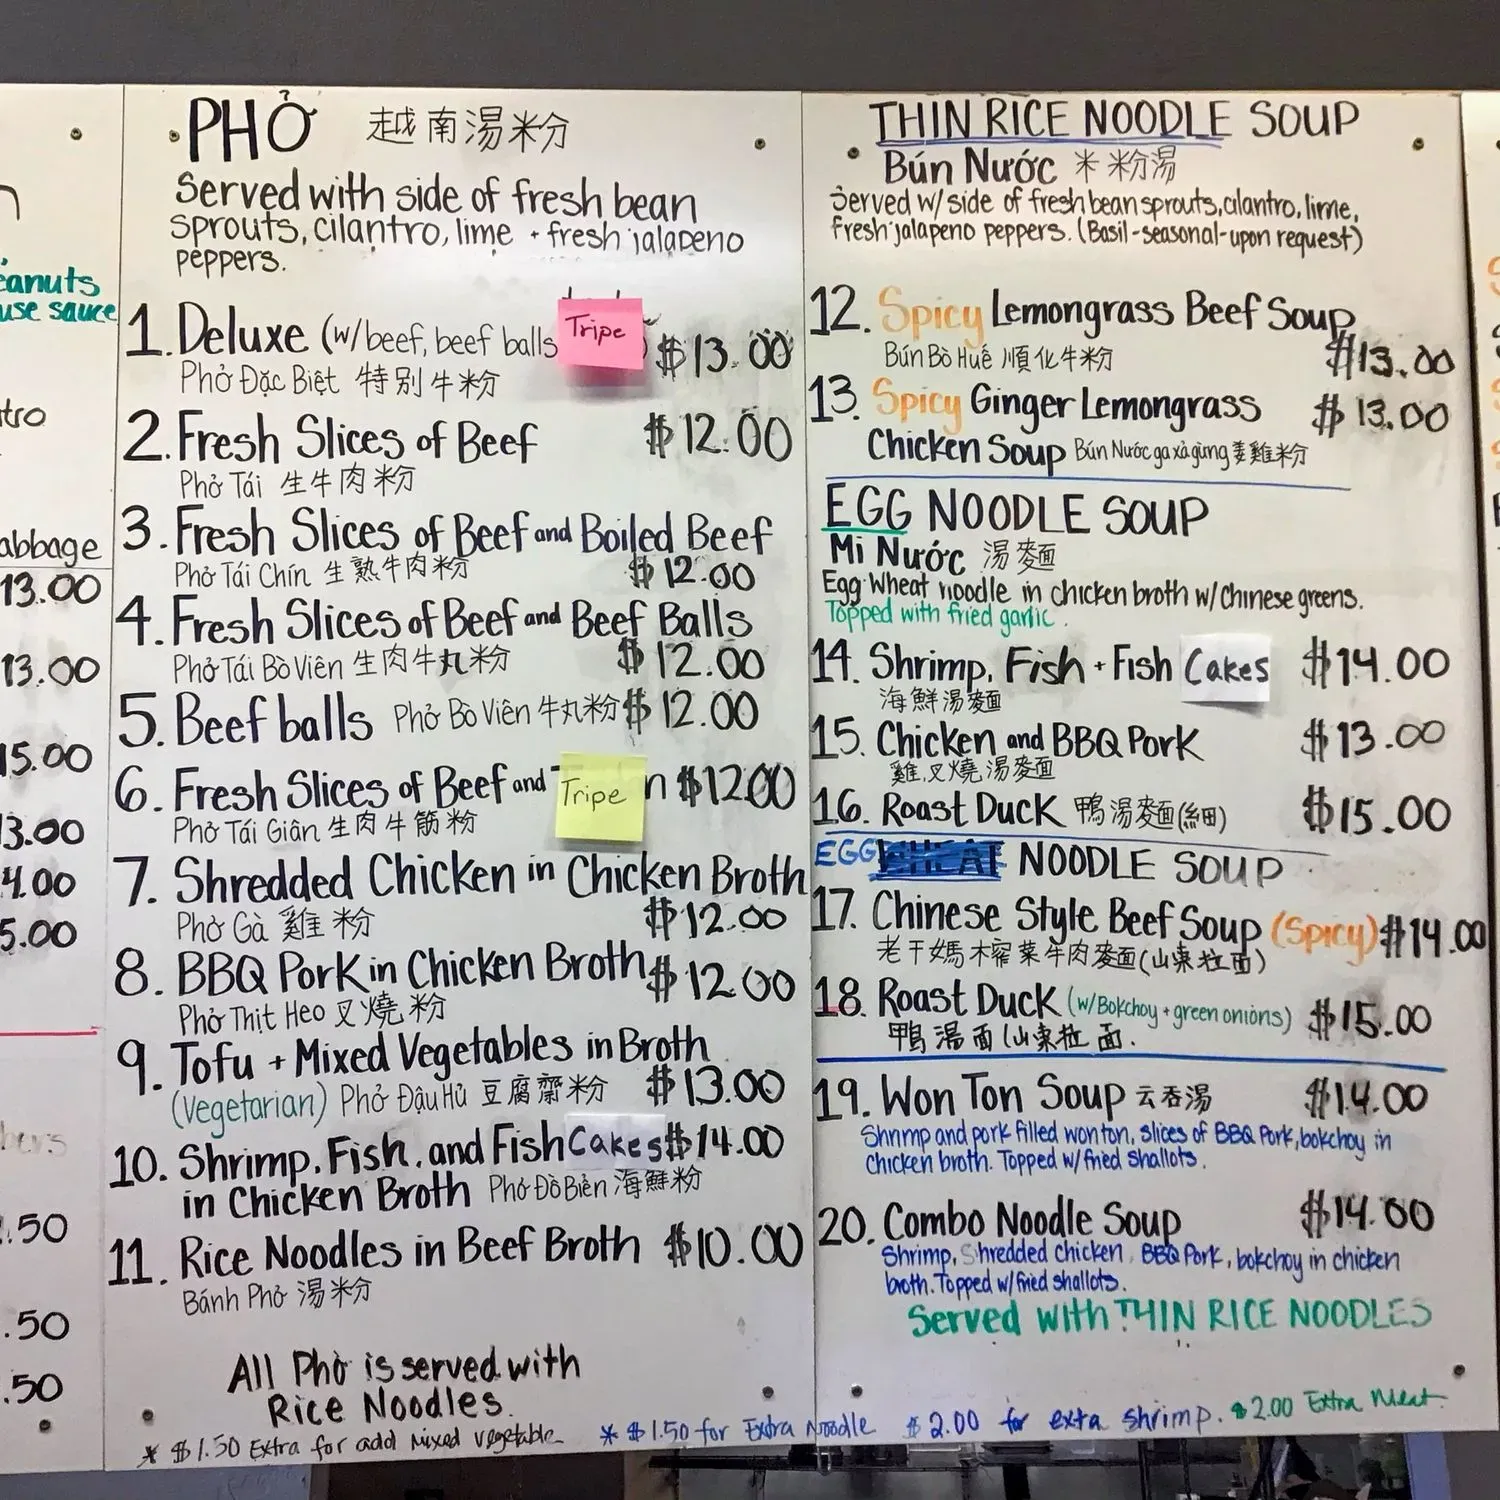 eanuts
use sauce
tro
abbage
13.00
13.00
15.00
3.00
4.00
5.00
.50
.50
.50
PHỞ 越南湯粉
Served with side of fresh bean
sprouts, cilantro, lime + fresh jalapeno
peppers.
1. Deluxe (w/beef, beef balls Tripe ) $13.00
Phở Đặc Biệt 特別牛粉
2. Fresh Slices of Beef $12.00
Phở Tái 生牛肉粉
3. Fresh Slices of Beef and Boiled Beef
Phở Tái Chín 生熟牛肉粉 $12.00
4. Fresh Slices of Beef and Beef Balls
Phở Tái Bò Viên 生肉牛丸粉 $12.00
5. Beef balls Phở Bò Viên 牛丸粉 $12.00
6. Fresh Slices of Beef and Tripe n $12.00
Phở Tái Giân 生肉牛筋粉
7. Shredded Chicken in Chicken Broth
Phở Gà 雞粉 $12.00
8. BBQ Pork in Chicken Broth $12.00
Phở Thịt Heo 叉燒粉
9. Tofu + Mixed Vegetables in Broth
(Vegetarian) Phở Đậu Hủ 豆腐齋粉 $13.00
10. Shrimp, Fish, and Fish Cakes $14.00
in Chicken Broth Phở Đồ Biển 海鮮粉
11. Rice Noodles in Beef Broth $10.00
Bánh Phở 湯粉
All Phở is served with
Rice Noodles.
* $1.50 Extra for add mixed vegetable
THIN RICE NOODLE SOUP
Bún Nước 米粉湯
Served w/ side of fresh bean sprouts, cilantro, lime,
fresh jalapeno peppers. (Basil-seasonal-upon request)
12. Spicy Lemongrass Beef Soup
Bún Bò Huế 順化牛粉 $13.00
13. Spicy Ginger Lemongrass $13.00
Chicken Soup Bún Nước ga xả gừng 姜雞粉
EGG NOODLE SOUP
Mì Nước 湯麵
Egg Wheat noodle in chicken broth w/ Chinese greens.
Topped with fried garlic.
14. Shrimp, Fish + Fish Cakes $14.00
海鮮湯麵
15. Chicken and BBQ Pork $13.00
雞,叉燒湯麵
16. Roast Duck 鴨湯麵(細) $15.00
EGG WHEAT NOODLE SOUP
17. Chinese Style Beef Soup (Spicy) $14.00
老干媽木榨菜牛肉麵(山東拉面)
18. Roast Duck (w/Bokchoy + green onions) $15.00
鴨湯面(山東拉面.
19. Won Ton Soup 云吞湯 $14.00
Shrimp and pork filled wonton, slices of BBQ Pork, bokchoy in
chicken broth. Topped w/ fried shallots.
20. Combo Noodle Soup $14.00
Shrimp, Shredded chicken, BBQ Pork, bokchoy in chicken
broth. Topped w/ fried shallots.
Served with THIN RICE NOODLES
* $1.50 for Extra Noodle $2.00 for extra shrimp. $2.00 Extra Meat.